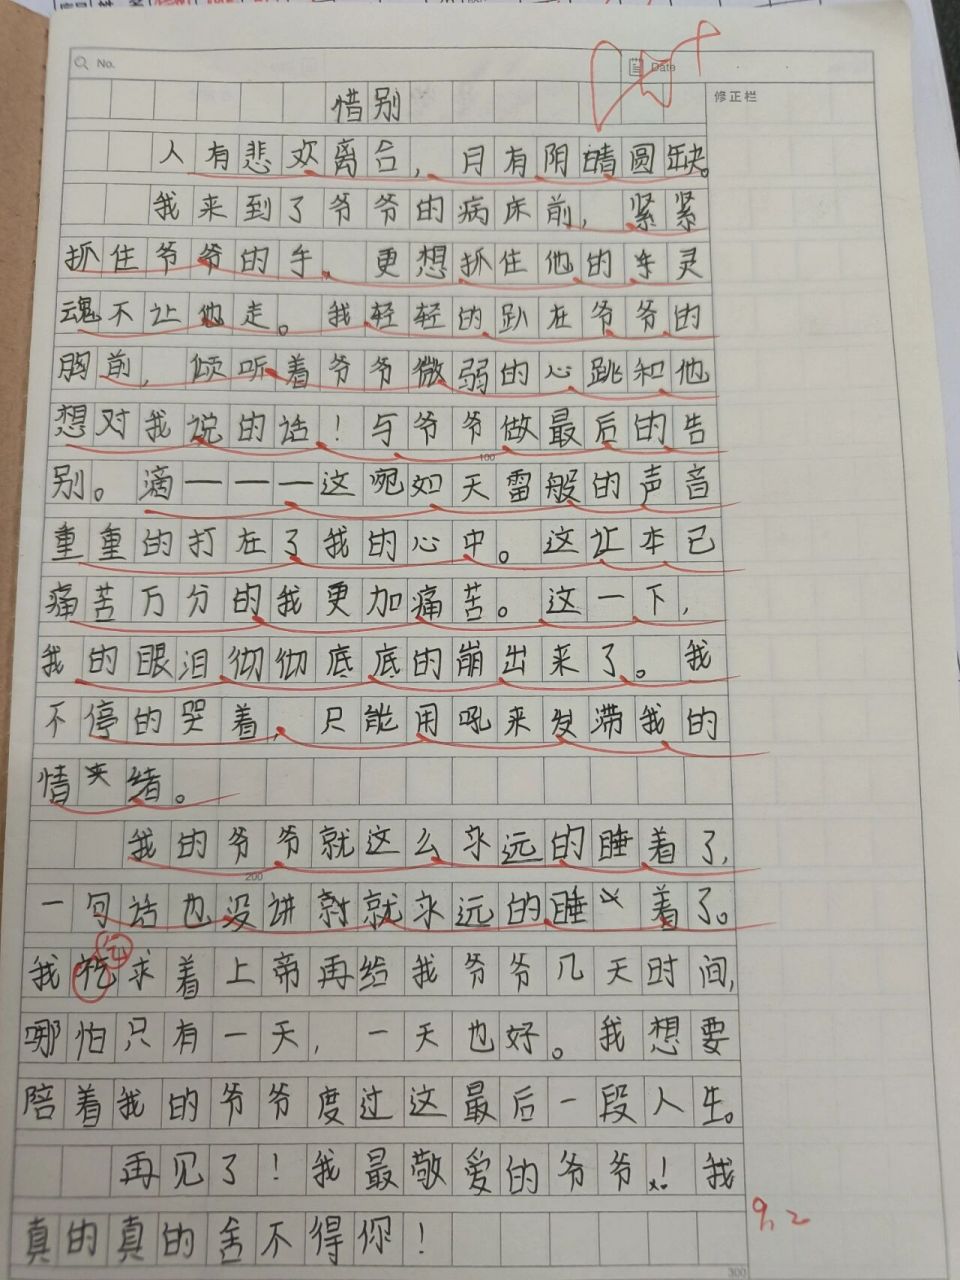 No.
Date
修正栏
惜别
人有悲欢离合，月有阴晴圆缺。
我来到了爷爷的病床前，紧紧
抓住爷爷的手，更想抓住他的灵
魂不让他走。我轻轻的趴在爷爷的
胸前，倾听着爷爷微弱的心跳和他
想对我说的话！与爷爷做最后的告
100
别。滴———这宛如天雷般的声音
重重的打在了我的心中。这让本已
痛苦万分的我更加痛苦。这一下，
我的眼泪彻彻底底的崩出来了。我
不停的哭着，只能用吼来发滞我的
情绪。
我的爷爷就这么永远的睡着了，
200
一句话也没讲就永远的睡着了。
我祈求着上帝再给我爷爷几天时间，
哪怕只有一天，一天也好。我想要
陪着我的爷爷度过这最后一段人生。
再见了！我最敬爱的爷爷！我
9.2
真的真的舍不得你！
300